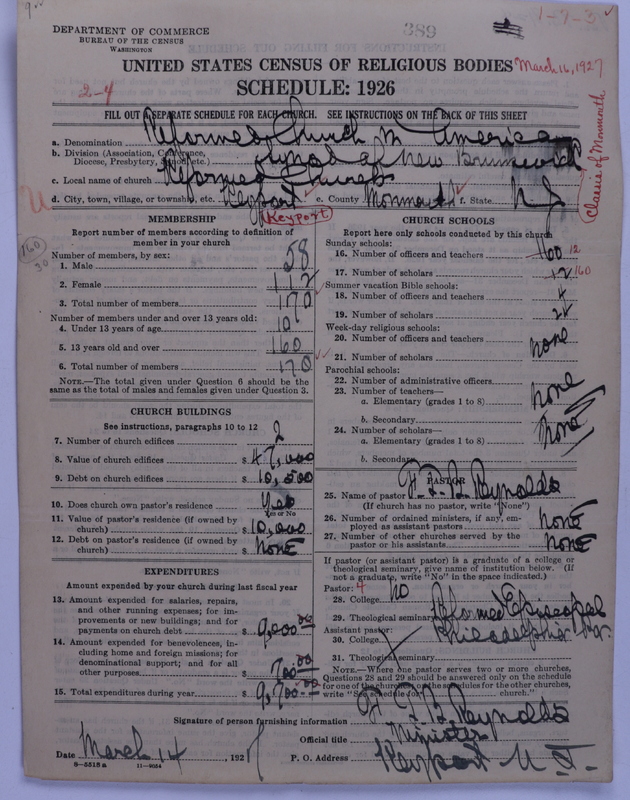 DEPARTMENT OF COMMERCE
BUREAU OF THE CENSUS
WASHINGTON
389
1-7-3
UNITED STATES CENSUS OF RELIGIOUS BODIES March 16, 1927
2-4
SCHEDULE: 1926
FILL OUT A SEPARATE SCHEDULE FOR EACH CHURCH. SEE INSTRUCTIONS ON THE BACK OF THIS SHEET
a. Denomination Reformed Church in America
b. Division (Association, Conference, Diocese, Presbytery, Synod, etc.) Synod of New Brunswick
Classis of Monmouth
c. Local name of church Reformed Church
d. City, town, village, or township, etc. Keyport e. County Monmouth f. State N J
Keyport
MEMBERSHIP
Report number of members according to definition of
member in your church
160
30
Number of members, by sex:
1. Male 58
2. Female 112
3. Total number of members 170
Number of members under and over 13 years old:
4. Under 13 years of age 10
5. 13 years old and over 160
6. Total number of members 170
NOTE.—The total given under Question 6 should be the
same as the total of males and females given under Question 3.
CHURCH BUILDINGS
See instructions, paragraphs 10 to 12
7. Number of church edifices 2
8. Value of church edifices $ 47,000
9. Debt on church edifices $ 10,500
10. Does church own pastor's residence Yes
Yes or No
11. Value of pastor's residence (if owned by
church) $ 10,000
12. Debt on pastor's residence (if owned by
church) $ NONE
EXPENDITURES
Amount expended by your church during last fiscal year
13. Amount expended for salaries, repairs,
and other running expenses; for im-
provements or new buildings; and for
payments on church debt $ 9,000 00
14. Amount expended for benevolences, in-
cluding home and foreign missions; for
denominational support; and for all
other purposes $ 700 00
15. Total expenditures during year $ 9,700 00
CHURCH SCHOOLS
Report here only schools conducted by this church
Sunday schools:
16. Number of officers and teachers 160 12
17. Number of scholars 12 160
Summer vacation Bible schools:
18. Number of officers and teachers 4
19. Number of scholars 24
Week-day religious schools:
20. Number of officers and teachers
none
21. Number of scholars
Parochial schools:
22. Number of administrative officers
23. Number of teachers—
none
a. Elementary (grades 1 to 8)
b. Secondary
24. Number of scholars— none
a. Elementary (grades 1 to 8)
b. Secondary
PASTOR
25. Name of pastor F. D. B. Reynolds
(If church has no pastor, write "None")
26. Number of ordained ministers, if any, em-
ployed as assistant pastors NONE
27. Number of other churches served by the
pastor or his assistants NONE
If pastor (or assistant pastor) is a graduate of a college or
theological seminary, give name of institution below. (If
not a graduate, write "No" in the space indicated.)
Pastor: 4
28. College No
29. Theological seminary Reformed Episcopal
Philadelphia Pa.
Assistant pastor:
30. College
31. Theological seminary
NOTE.—Where one pastor serves two or more churches,
Questions 28 and 29 should be answered only on the schedule
for one of the churches; on the schedules for the other churches,
write "See schedule for church."
Signature of person furnishing information F. D. B. Reynolds
Official title Minister
Date March 14, 1927
P. O. Address Keyport N. J.
8-5518 a 11-9054